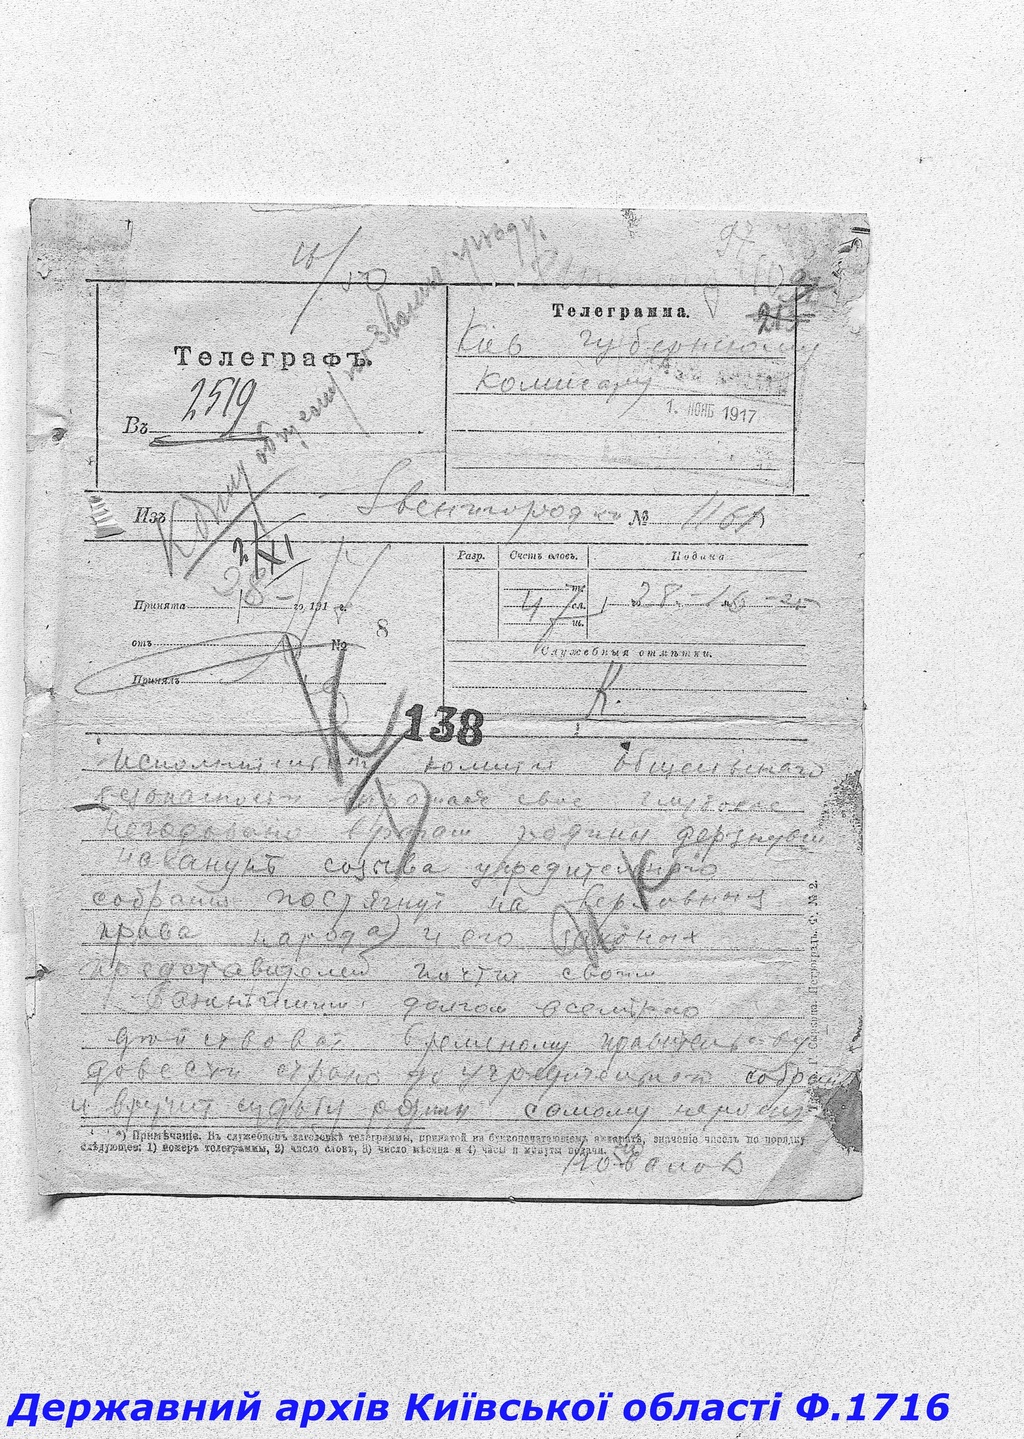 18/50
97
Телеграфъ.
2519
Въ
Кому общему по
Телеграмма.
Кіев Губернскому
Комисару
1. НОЯБ 1917
215
Изъ Звенигородки № 1161
2/XI
Разр. Счетъ словъ. Подача
Принята 28 го 191 г.
47 сл. 28
отъ № 8
Служебныя отмѣтки.
Принялъ
К.
138
Исполнительный комитет общественного
безопасности выражая свое глубокое
негодование врагам родины дерзнувшим
накануне созыва учредительного
собрания посягнут на верховныя
права народа и его законных
представителей почтет своим
важнейшим долгом всемерно
действоват временному правительству
довести страну до учредительного собран
и вручит судьбу родины самому народу
*) Примѣчаніе. Въ служебномъ заголовкѣ телеграммы, принятой на буквопечатающемъ аппаратѣ, значеніе чиселъ по порядку
слѣдующее: 1) номеръ телеграммы, 2) число словъ, 3) число мѣсяца и 4) часы и минуты подачи.
Державний архів Київської області Ф.1716